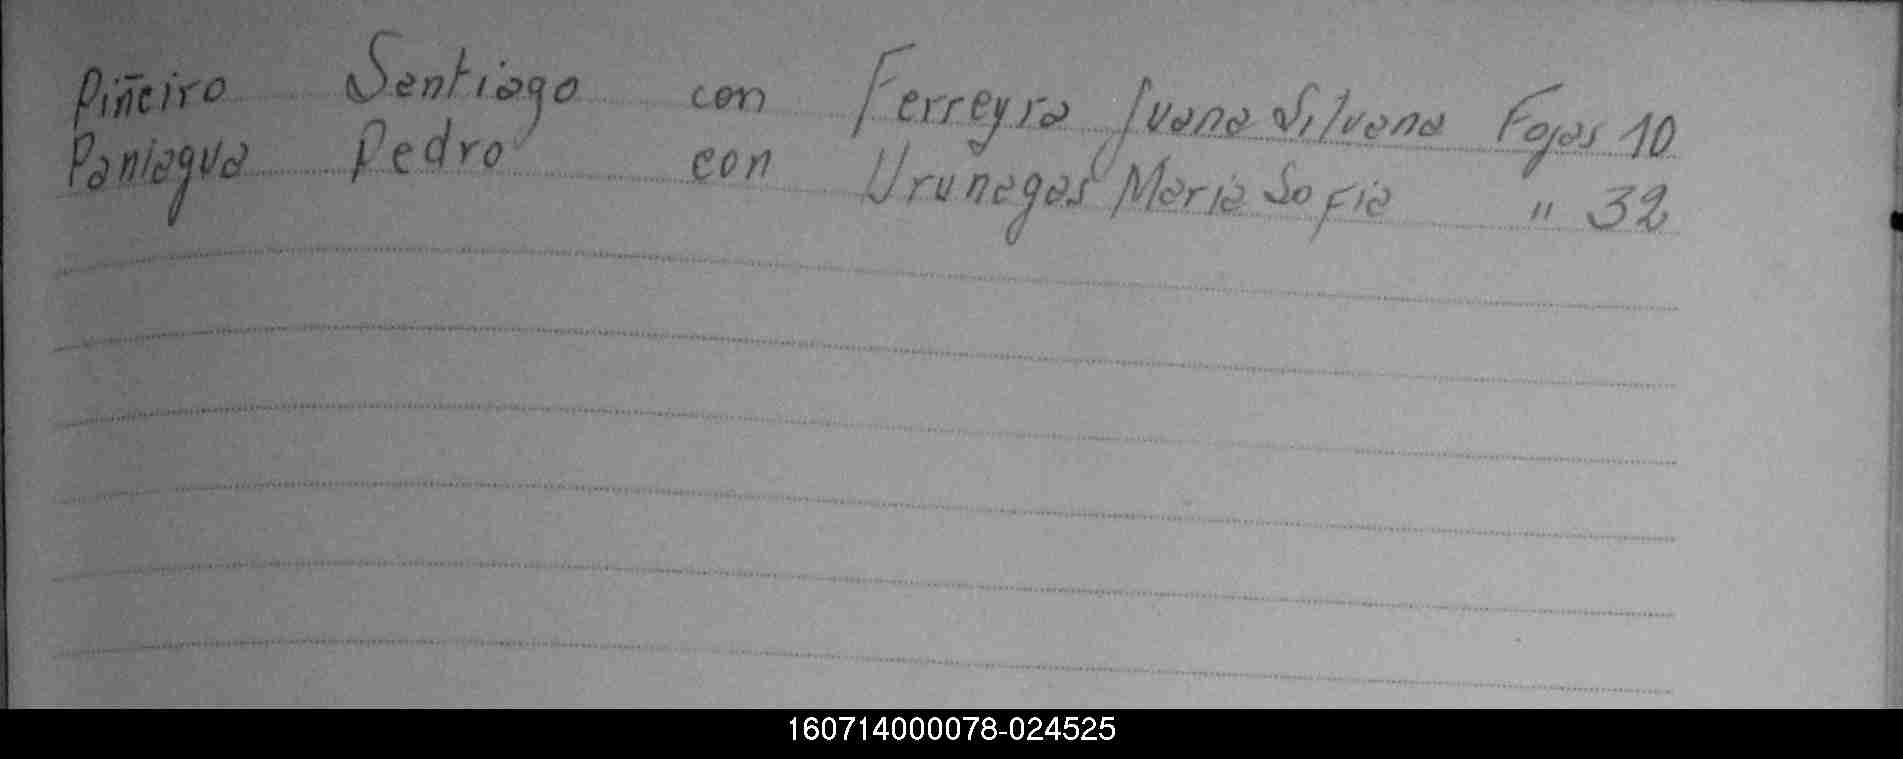 Piñeiro Santiago con Ferreyra Juana Silvana Fojas 10
Paniagua Pedro con Urunagas Maria Sofia " 32
160714000078-024525